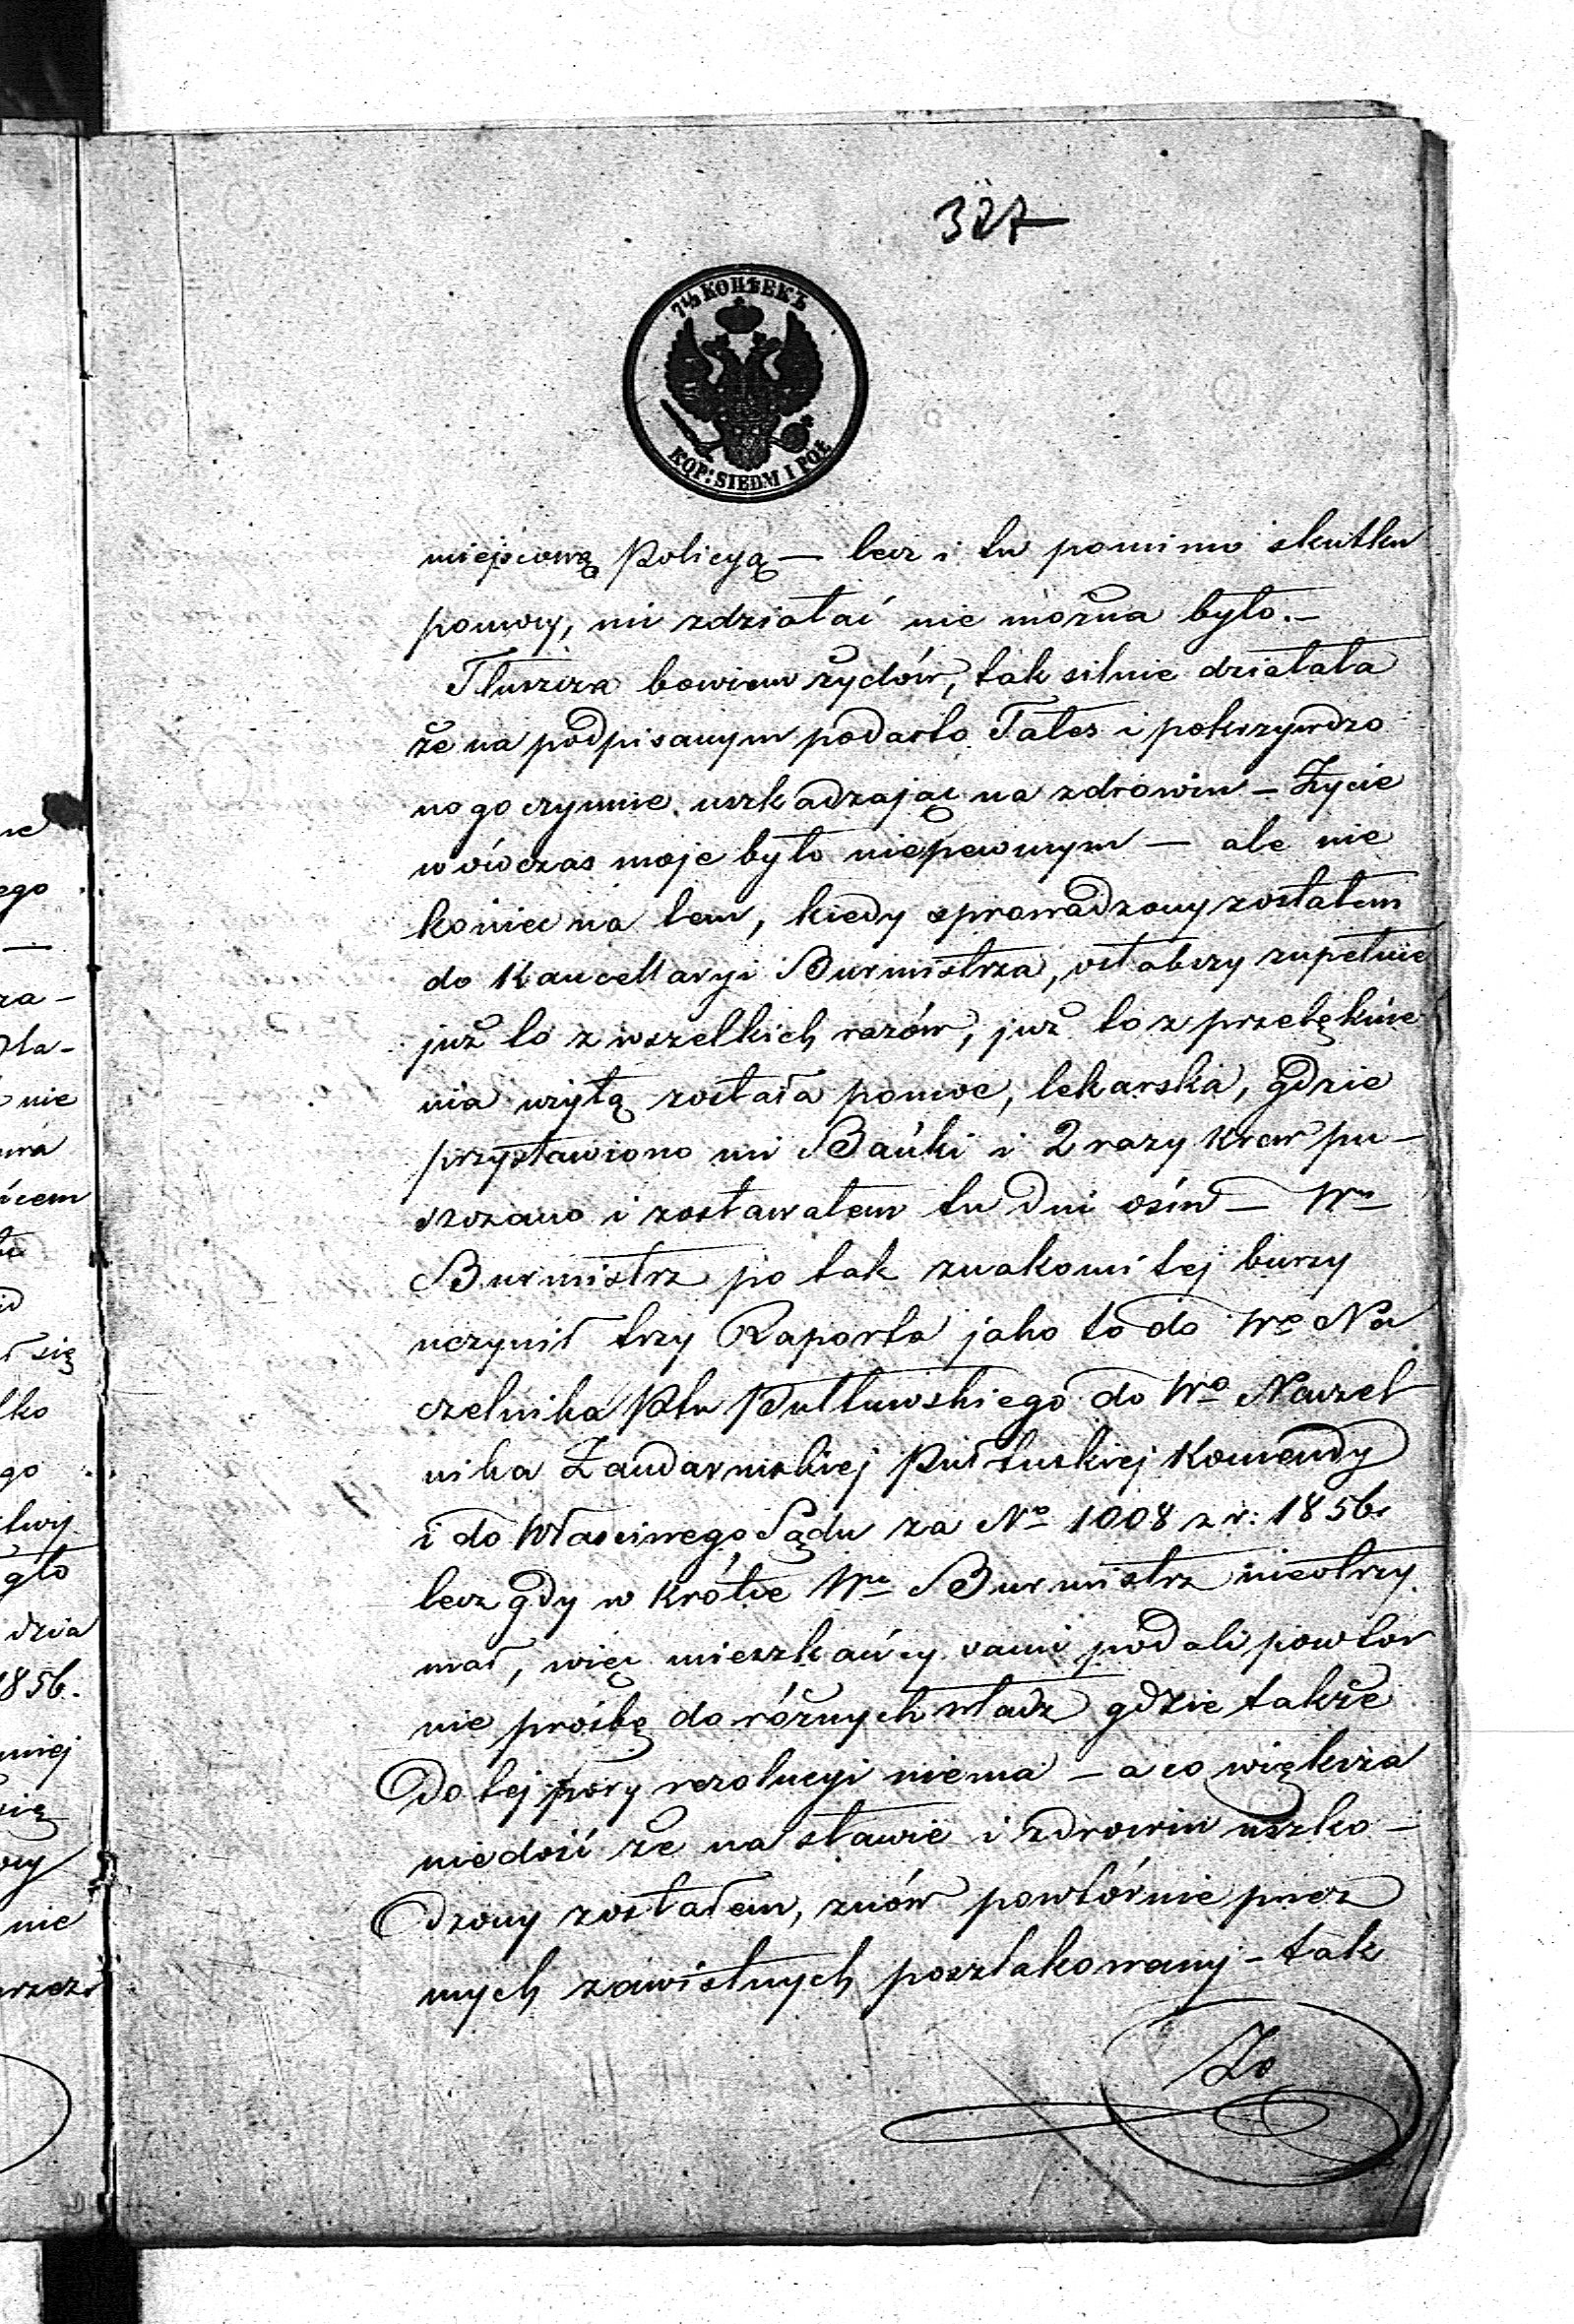 327
7½ КОПѢЕКЪ
KOP: SIEDM I POŁ
miejscową Policyą — lecz i tu pomimo skutku
pomocy, nic zdziałać nie można było. —
Tłuszcza bowiem żydów, tak silnie działała
że na podpisanym podarło Tałes i pokrzywdzo
nogo czynnie uszkadzając na zdrowiu — Życie
wówczas moje było niepewnym — ale nie
koniec na tem, kiedy sprowadzony zostałem
do Kancellaryi Burmistrza, osłabszy zupełnie
już to z wszelkich razów, już to z przelęknie
nia użytą została pomoc, lekarska, gdzie
przystawiono mi Bańki i 2 razy krew pu —
szczano i zostawałem tu dni ośm — Wny
Burmistrz po tak znakomitej burzy
uczynił trzy Raporta jako to do Wo Na
czelnika Ptu Pułtuwskiego do Wo Naczel
nika Żandarmskiej Pułtuskiej Komendy
i do Właściwego Sądu za No 1008 z r: 1856.
lecz gdy w krótce Wny Burmistrz nieotrzy
mał, więc mieszkańcy sami podali powtor
nie prośbę do różnych władz gdzie także
do tej pory rezolucyi niema — a co większa
niedość że na sławie i zdrowiu uszko —
dzony zostałem, znów powtórnie przez
mych zawistnych poszlakowany — tak
Że
ne
ego
—
za —
ota —
nie
ura
ńcem
id
ł się
lko
go
gło
dzia
1856.
mniej
się
nie
przez